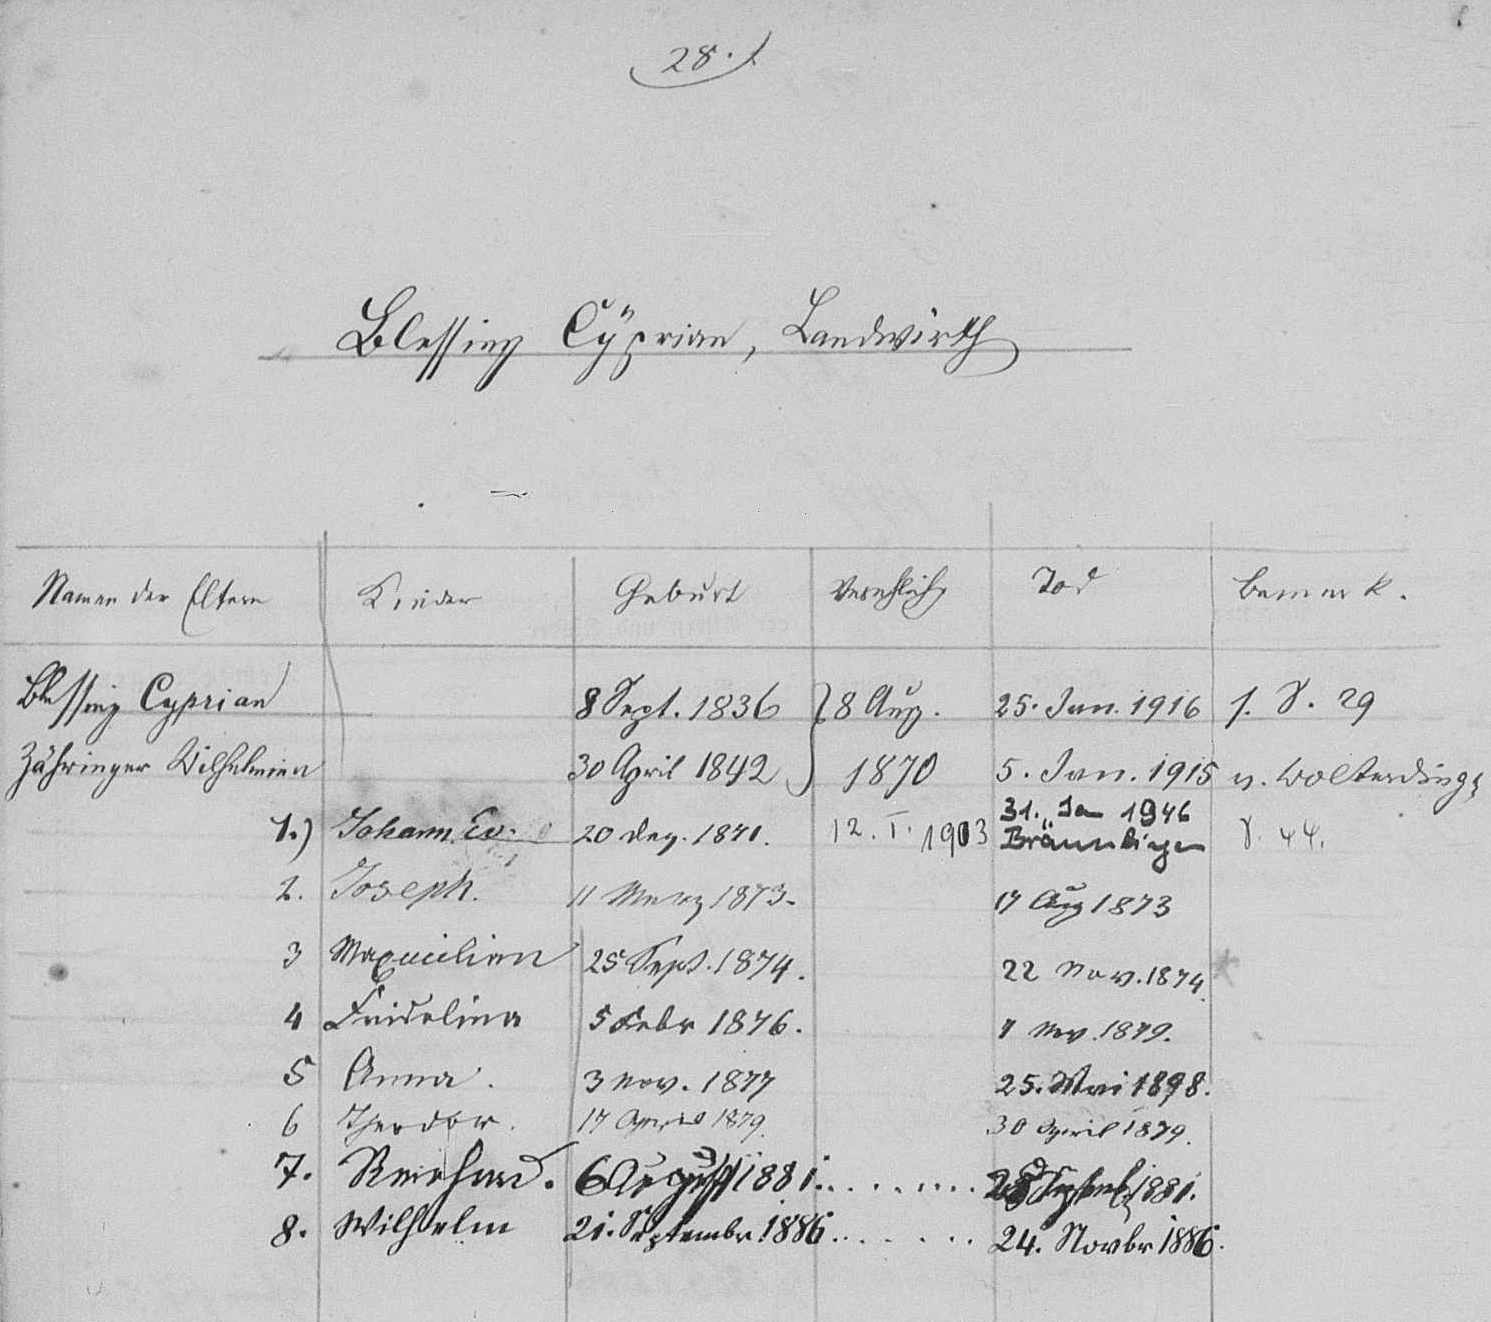 28.
Blessing Cÿprian, Landwirth
Namen der Eltern Kinder Geburt Verehlich. Tod Bemerk.
Blessing Cyprian 8 Sept. 1836 } 8 Aug. 25. Jan. 1916 s. S. 29
Zähringer Wilhelmina 30 April 1842 } 1870 5. Jan. 1915 v. Wolterdings
1.) Johann Ev. 20 Dez. 1871. 12. I. 1903 31. Ja 1946 Bräunlingen S. 44.
2. Joseph. 11 Merz 1873. 17 Aug 1873
3 Maximilian 25 Sept. 1874. 22 Nov. 1874.
4 Fridolina 5 Febr 1876. 7 Nov. 1879.
5 Anna. 3 Nov. 1877 25. Mai 1898.
6 Theodor. 17 April 1879. 30 April 1879.
7. Bernhard. 6 August 1881. ........ 1881.
8. Wilhelm 21. Septembr 1886. ...... 24. Novbr 1886.